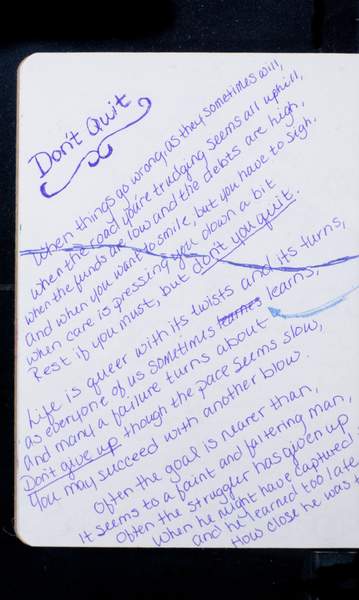 Don't Quit
When things go wrong, as they sometimes will,
when the road you're trudging seems all uphill,
when the funds are low and the debts are high,
and when you want to smile, but you have to sigh.
when care is pressing you down a bit
Rest if you must, but don't you quit.
Life is queer with its twists and its turns,
as everyone of us sometimes learns,
and many a failure turns about
Don't give up though the pace seems slow,
You may succeed with another blow.
Often the goal is nearer than,
It seems to a faint and faltering man,
Often the struggler has given up
When he might have captured
and he learned too late
How close he was